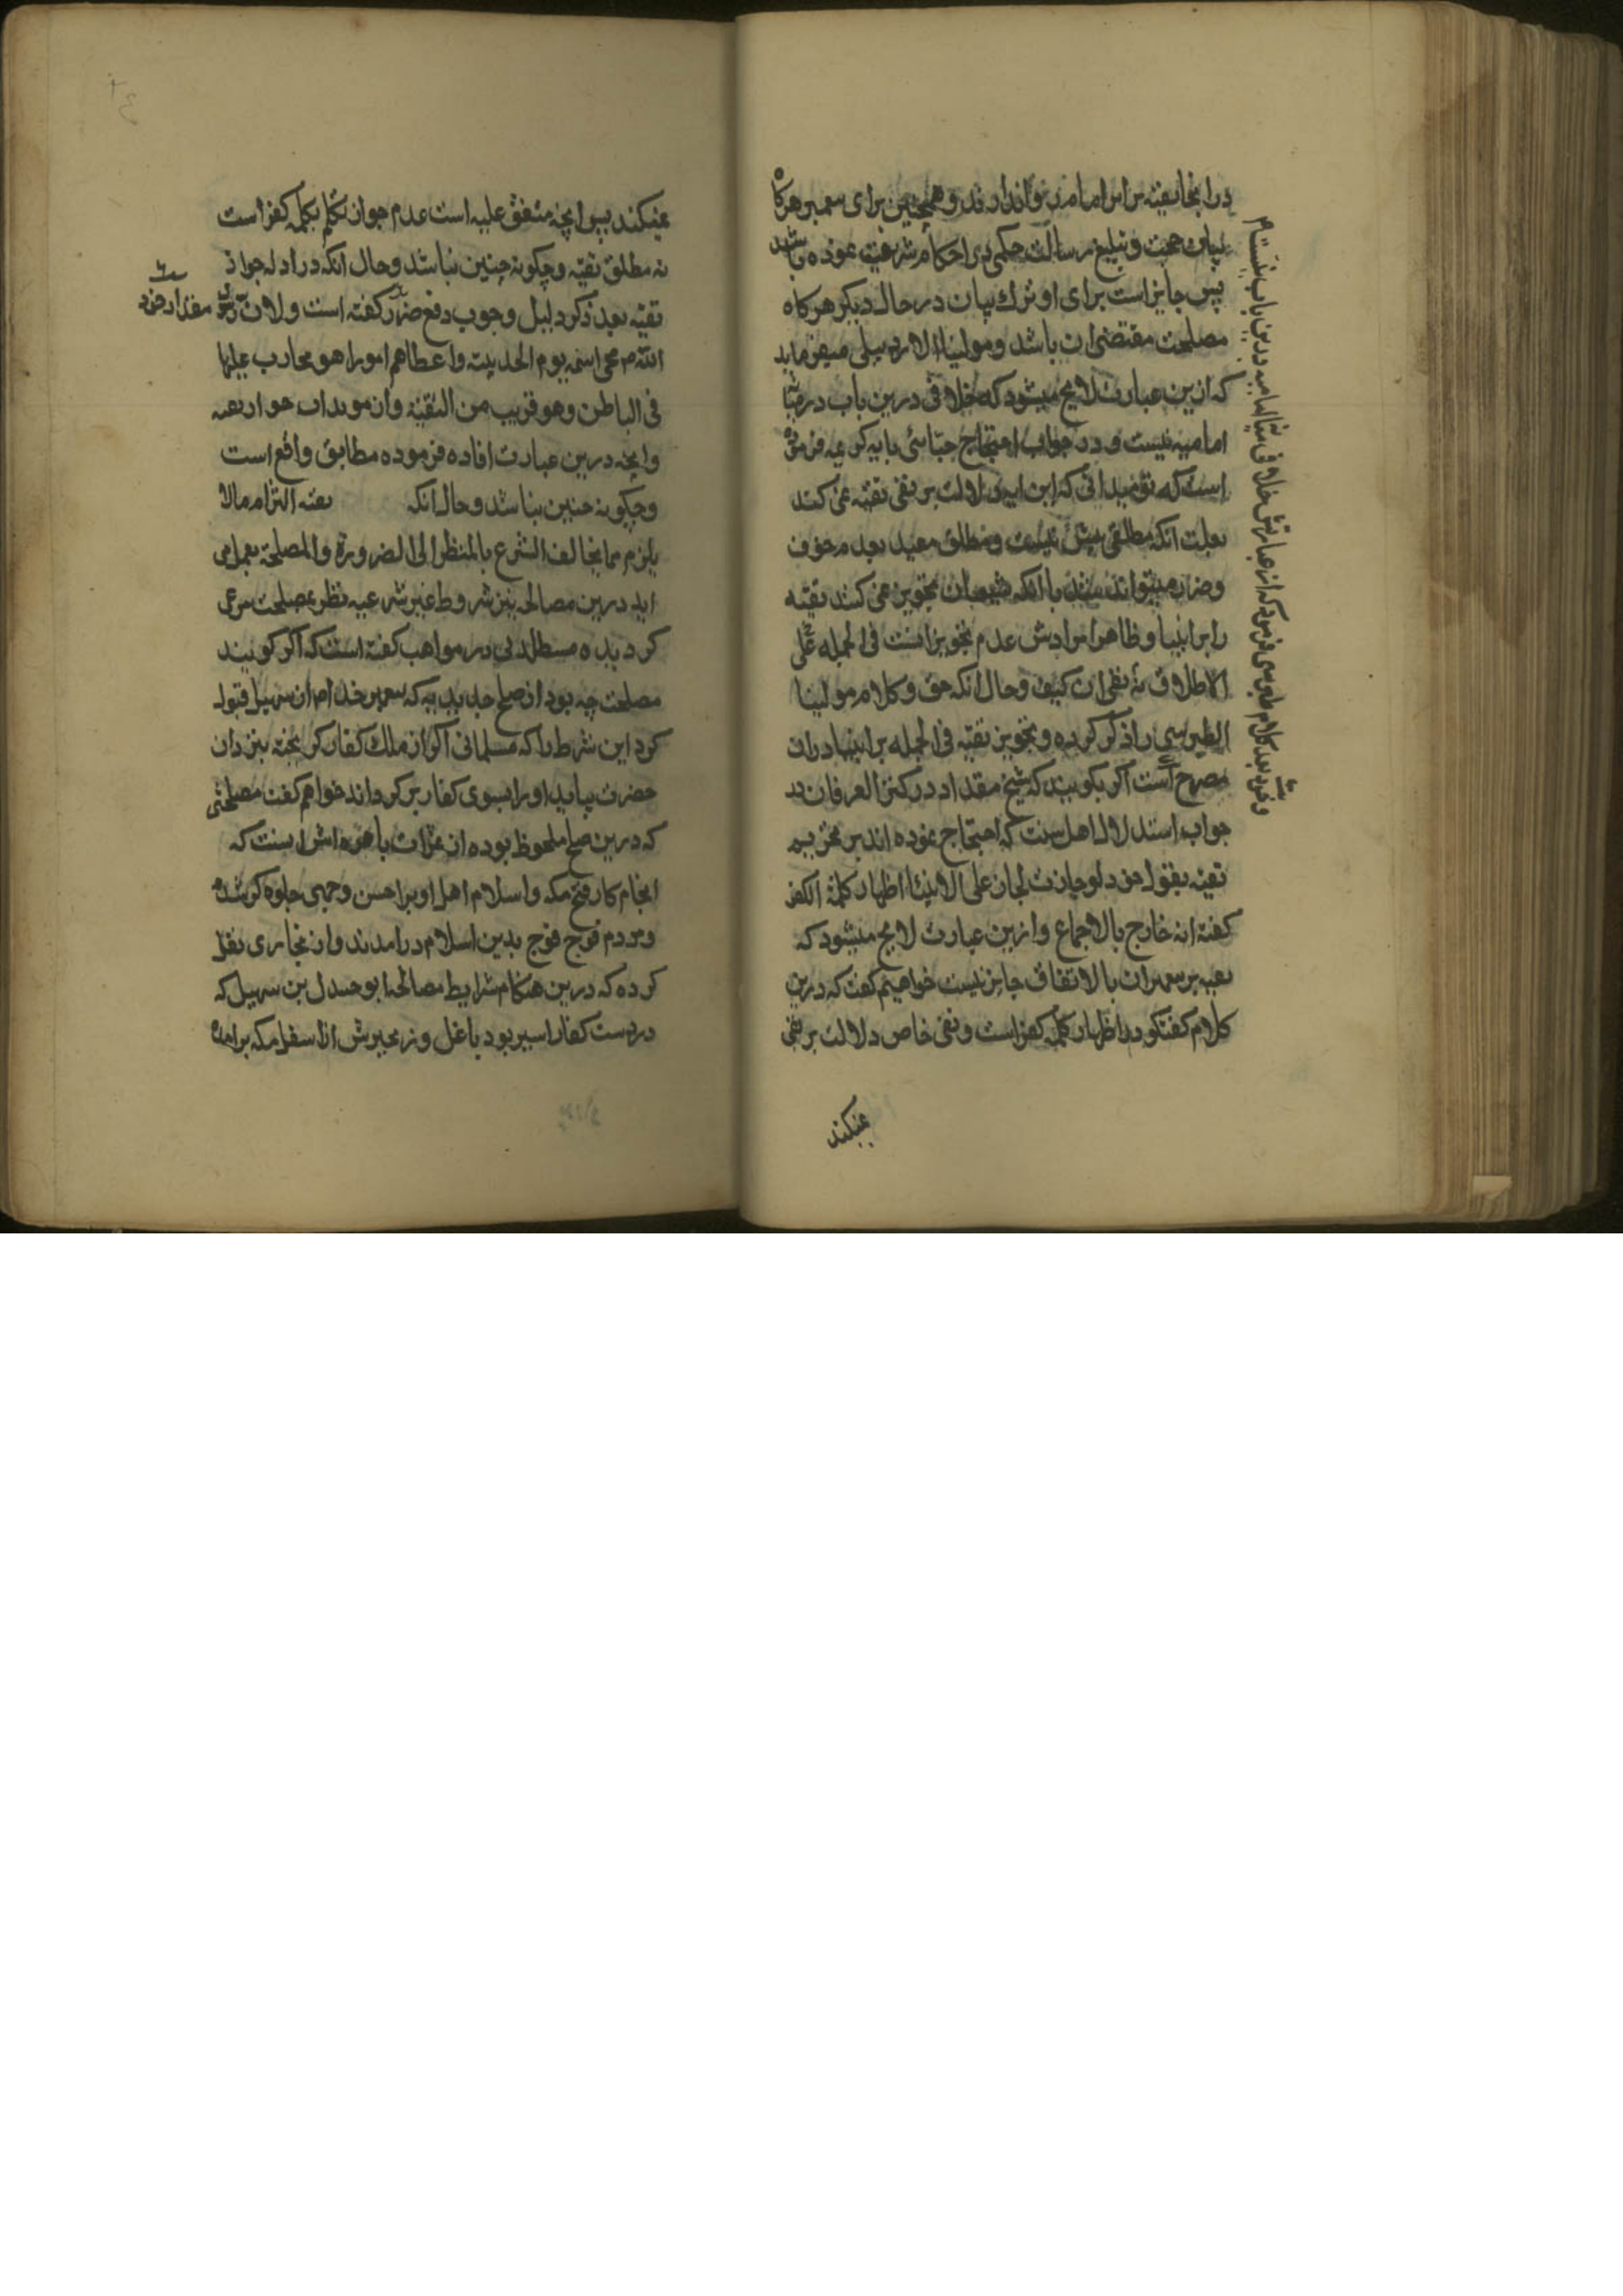 در انجا تقیه بر امام روا ندارند و همچنین برای پیغمبر هرکاه
بیان حجت و تبلیغ رسالت حکمی از احکام شرعیه نموده باشد
پس جایز است برای او ترك بیان در حال دیکر هرکاه
مصلحت مقتضی ان باشد و مولینا الاردبیلی میفرماید
که ازین عبارت لایح میشود که خلافی درین باب در میان
امامیه نیست و در جواب احتجاج جبائی بایه کریمه فرموده
است که تو میدانی که این ایه دلالت بر نفی تقیه نمی کند
بعلت انکه مطلقی بیش نیست و مطلق مقید بعدم خوف
وضرر میتواند شد با انکه شیعیان تجویز نمی کنند تقیه
را بر انبیا و ظاهرا مرادش عدم تجویز است فی الجمله علی
الاطلاق نه نفی ان کیف و حال انکه حق و کلام مولینا
الطبرسی را ذکر کرده و تجویز تقیه فی الجمله بر انبیا در ان
مصرح است اکر بکویند که شیخ مقداد در کنز العرفان در
جواب استدلال اهل سنت که احتجاج نموده اند بر تحریم
تقیه بقول خود لو جازت لجاز علی الانبیاء اظهار کلمة الکفر
کفته انه خارج بالاجماع و ازین عبارت لایح میشود که
تقیه بر پیغمبران بالاتفاق جایز نیست خواهیم کفت که درین
کلام کفتکو در اظهار کلمه کفر است و نفی خاص دلالت بر نفی
نمیکند
ازین عبارتش خلافی
نمیکند پس انچه متفق علیه است عدم جواز تکلم بکلمه کفر است
نه مطلق تقیه و چکونه چنین نباشد و حال انکه در ادله جواز
تقیه بعد ذکر دلیل وجوب دفع ضرر کفته است و لان رسول
مقداد خود
الله ص محی اسمه یوم الحدیبیة و اعطاهم امورا هو محارب علیها
فی الباطن و هو قریب من التقیة و ان موید است
وانچه درین عبارت افاده فرموده مطابق واقع است
وچکونه چنین نباشد و حال انکه تقیه التزام مالا
یلزم مما یخالف الشرع بالنظر الی الضرورة والمصلحة بعمل می
اید درین مصالحه نیز شروط غیر شرعیه نظر بمصلحت مرعی
کردیده قسطلانی در مواهب کفته است که اکر کویند
مصلحت چه بود از صلح حدیبیه که پیغمبر خدا ص از سهیل قبول
کرد این شرط را که مسلمانی اکر از ملك کفار کریخته بنزد ان
حضرت بیاید او را بسوی کفار بر کرداند خواهم کفت مصلحتی
که درین صلح ملحوظ بوده از ثمرات باهره اش اینست که
انجام کار فتح مکه و اسلام اهل او بر احسن وجهی جلوه کر شده
ومردم فوج فوج بدین اسلام درامدند و از بخاری نقل
کرده که درین هنکام شرایط مصالحه ابو جندل بن سهیل که
در دست کفار اسیر بود با غل و زنجیرش از اسفل مکه برامده